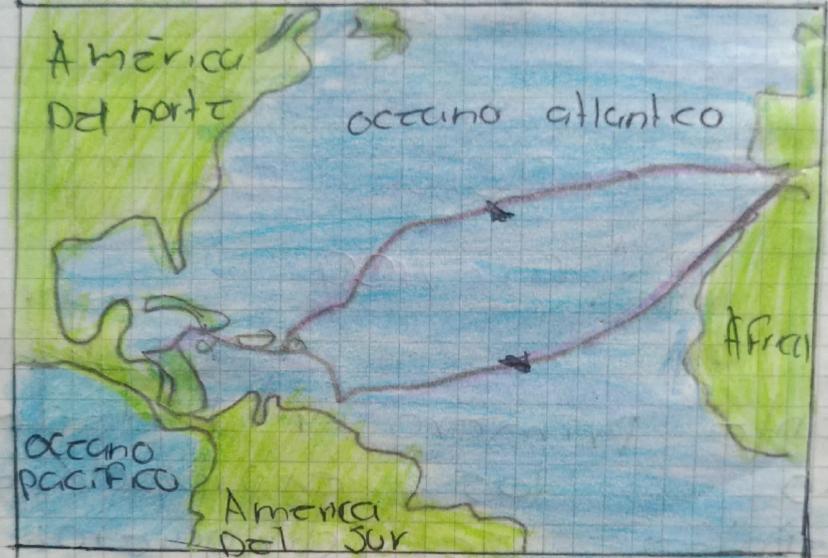 América
Del norte
oceano atlantico
Africa
oceano
pacifico
America
Del Sur